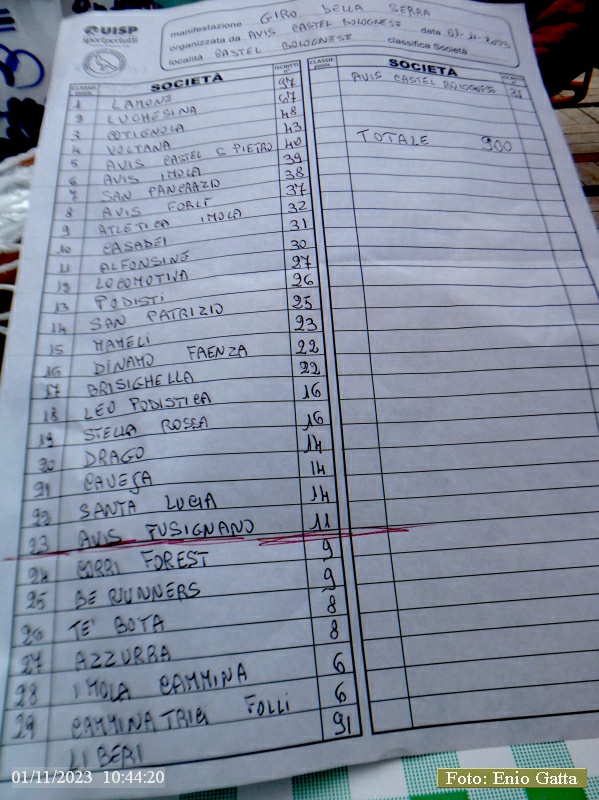 UISP
sportpertutti
manifestazione GIRO DELLA SERRA data 01-11-2023
organizzata da AVIS CASTEL BOLOGNESE
località CASTEL BOLOGNESE classifica Società
CLASSIF. SOCIETÀ ISCRITTI n°
1 LAMONE 97
2 LUGHESINA 67
3 COTIGNOLA 48
4 VOLTANA 43
5 AVIS CASTEL S PIETRO 40
6 AVIS IMOLA 39
7 SAN PANCRAZIO 38
8 AVIS FORLÌ 37
9 ATLETICA IMOLA 32
10 CASADEI 31
11 ALFONSINE 30
12 LOCOMOTIVA 27
13 PODISTI 26
14 SAN PATRIZIO 25
15 MAMELI 23
16 DINAMO FAENZA 22
17 BRISIGHELLA 22
18 LEO PODISTICA 16
19 STELLA ROSSA 16
20 DRAGO 14
21 CAVEJA 14
22 SANTA LUCIA 14
23 AVIS FUSIGNANO 11
24 CORRI FOREST 9
25 BE RUNNERS 9
26 TE' BOTA 8
27 AZZURRA 8
28 IMOLA CAMMINA 6
29 CAMMINATRICI FOLLI 6
LIBERI 91
CLASSIF. SOCIETÀ ISCRITTI n°
AVIS CASTEL BOLOGNESE 31
TOTALE 900
01/11/2023 10:44:20
Foto: Enio Gatta